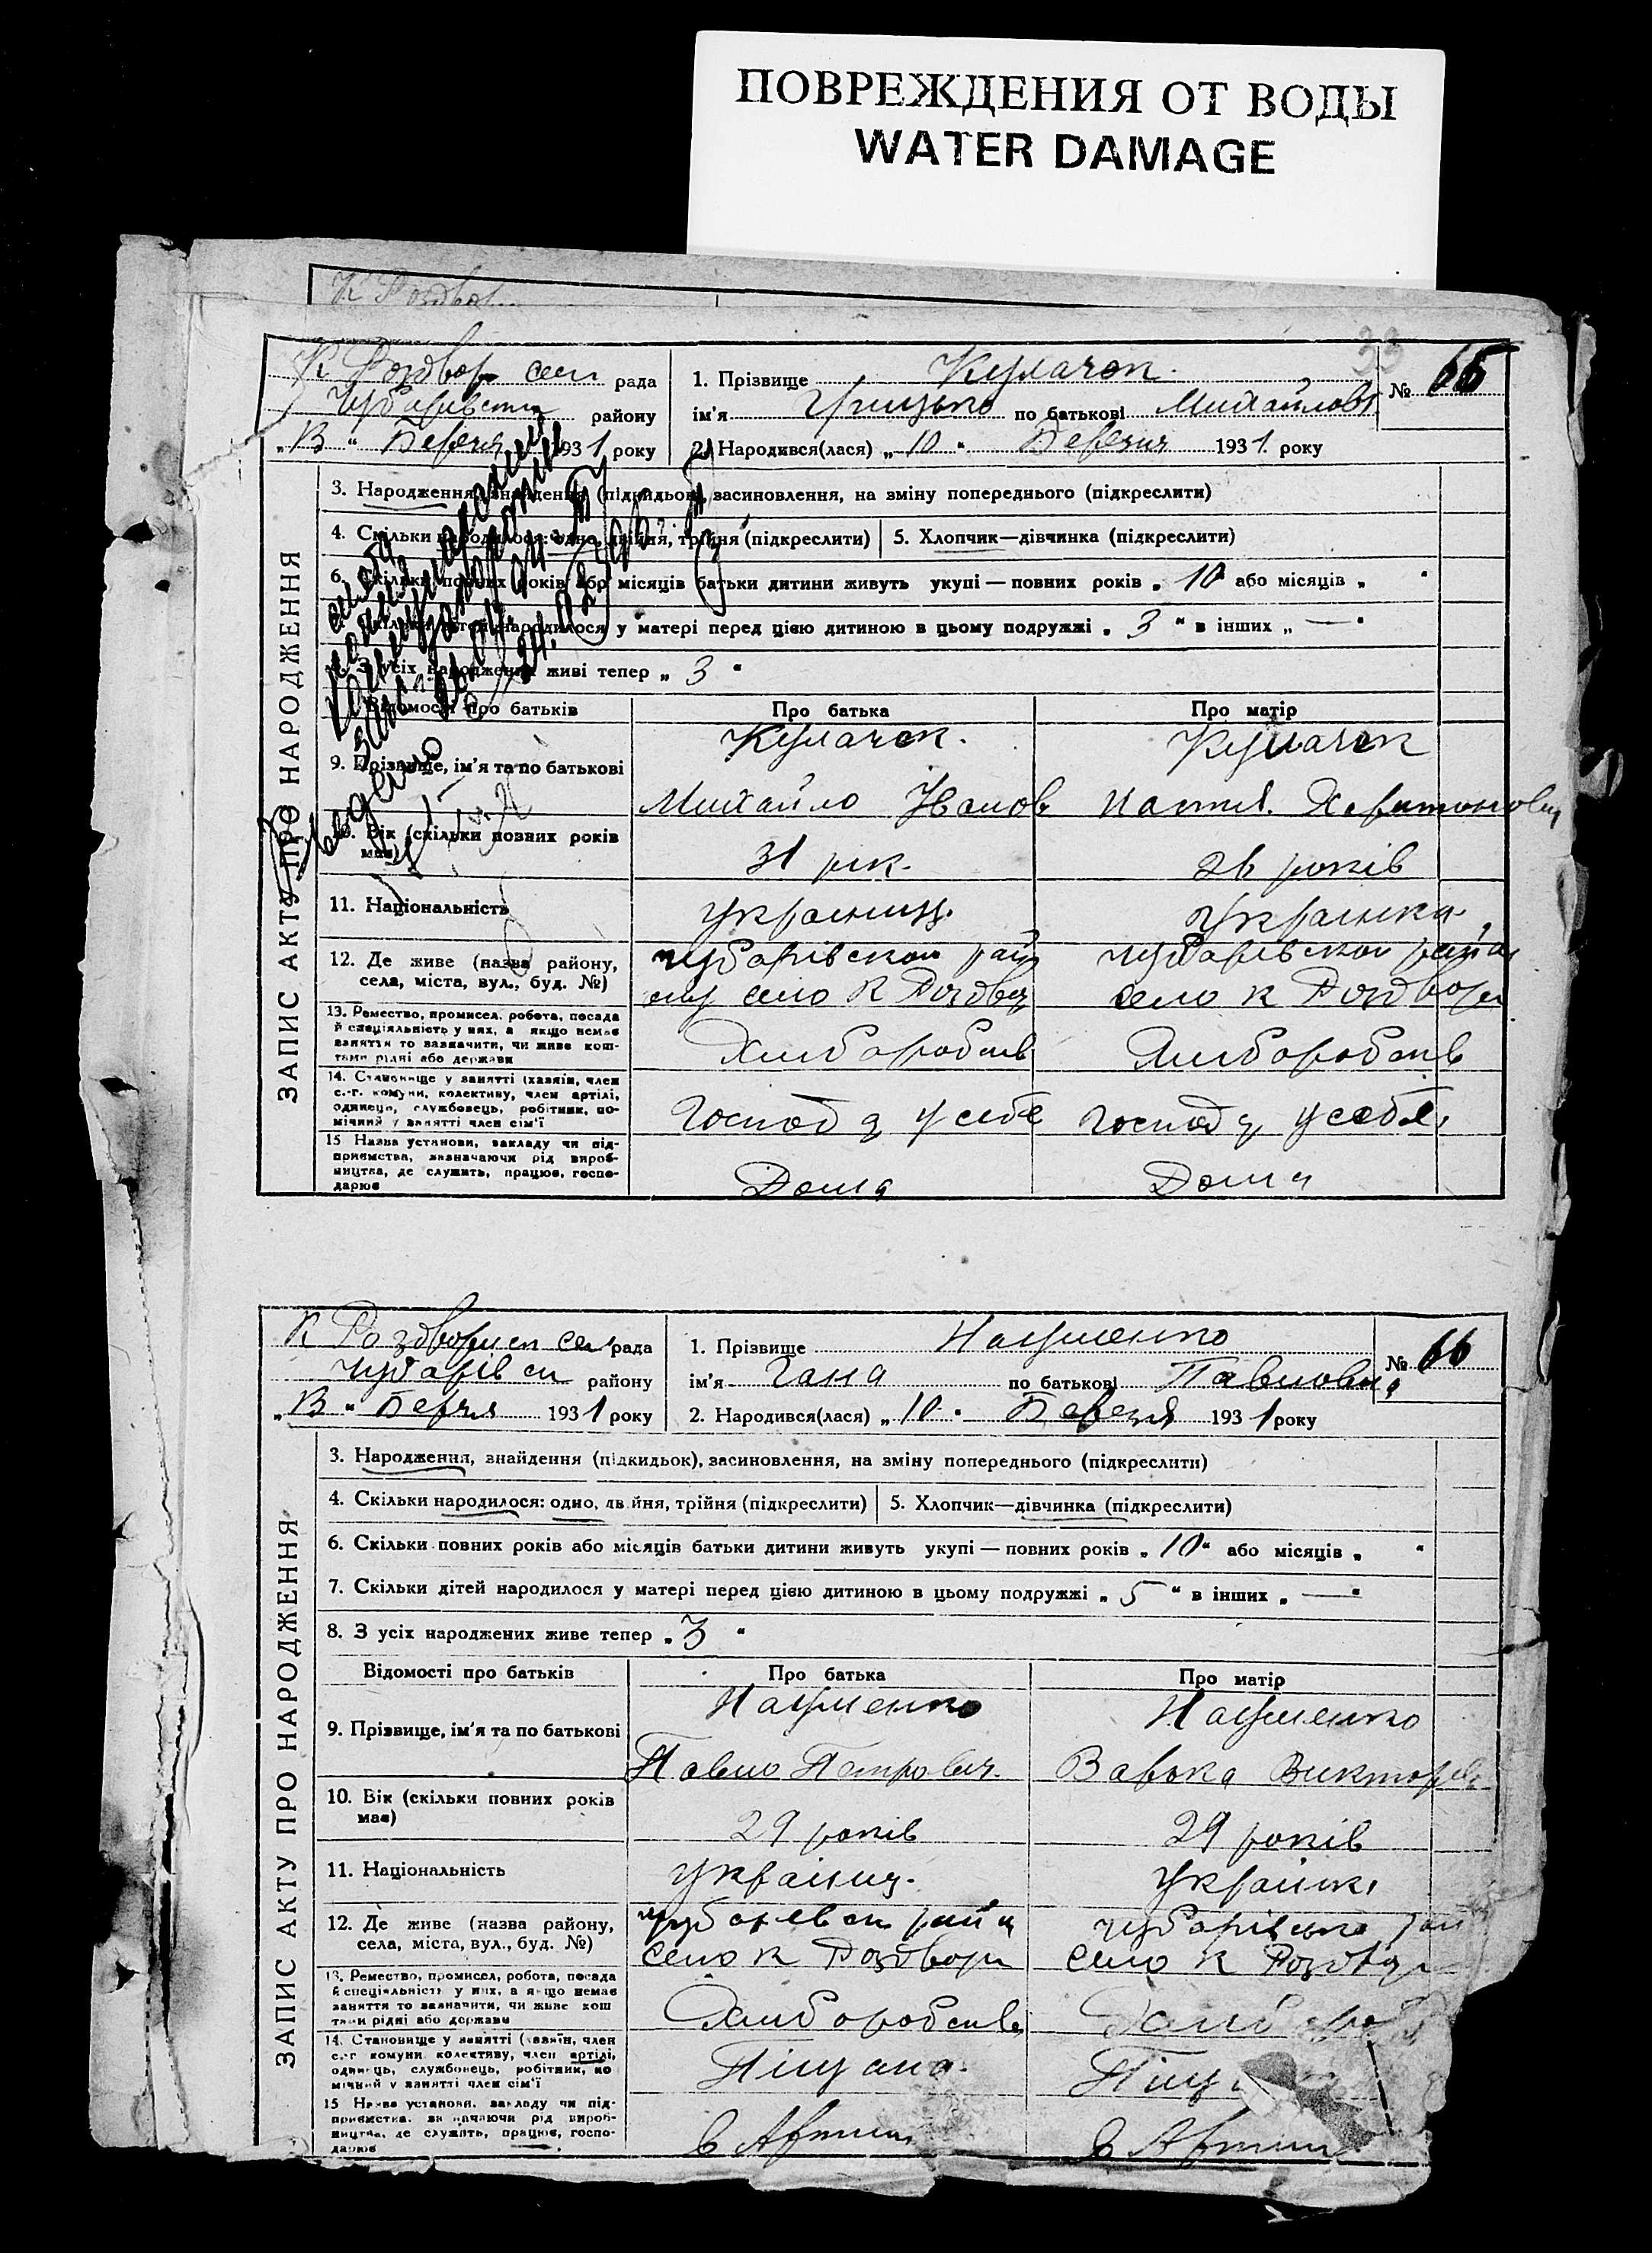 ПОВРЕЖДЕНИЯ ОТ ВОДЫ
WATER DAMAGE
К Роздвор
33
К Роздвор сел рада
1. Прізвище Кулачок
№ 65
Чубарівськ району
ім'я Грицько по батькові Михайлов
„13“ Березня 1931 року
2. Народився(лася) „10“ Березня 1931 року
ЗАПИС АКТУ ПРО НАРОДЖЕННЯ
3. Народження, знайдення (підкидьок), засиновлення, на зміну попереднього (підкреслити)
4. Скільки народилося: одно, двійня, трійня (підкреслити)
5. Хлопчик—дівчинка (підкреслити)
6. Скільки повних років або місяців батьки дитини живуть укупі — повних років „10“ або місяців „ “
7. Скільки дітей народилося у матері перед цією дитиною в цьому подружжі „3“ в інших „—“
8. З усіх народжених живі тепер „3“
Відомості про батьків
Про батька
Про матір
9. Прізвище, ім'я та по батькові
Кулачок
Михайло Іванов
Кулачок
Харитоновн
10. Вік (скільки повних років має)
31 рік
26 років
11. Національність
українць
українка
12. Де живе (назва району, села, міста, вул., буд. №)
чубарівском
село К Роздвор
чубарівском
село К Роздвори
13. Ремество, промисел, робота, посада й спеціяльність у них, а якщо немає заняття то зазначити, чи живе коштами рідні або держави
Хлиборобств
Хлиборобств
14. Становище у занятті (хазяїн, член с.-г. комуни, колективу, член артілі, одинець, службовець, робітник, помічний у занятті член сім'ї
Господ у себе
господ у себе
15 Назва установи, закладу чи підприємства, зазначаючи рід виробництва, де служить, працює, господарює
Дома
Дома
К Роздвориск сел рада
1. Прізвище Науменко
№ 66
чубарівск району
ім'я Гана по батькові Павловна
„13“ Берзня 1931 року
2. Народився(лася) „10“ Березня 1931 року
ЗАПИС АКТУ ПРО НАРОДЖЕННЯ
3. Народження, знайдення (підкидьок), засиновлення, на зміну попереднього (підкреслити)
4. Скільки народилося: одно, двійня, трійня (підкреслити)
5. Хлопчик—дівчинка (підкреслити)
6. Скільки повних років або місяців батьки дитини живуть укупі — повних років „10“ або місяців „ “
7. Скільки дітей народилося у матері перед цією дитиною в цьому подружжі „5“ в інших „—“
8. З усіх народжених живе тепер „3“
Відомості про батьків
Про батька
Про матір
9. Прізвище, ім'я та по батькові
Науменко
Павло Петрович
Науменко
Варька Викторів
10. Вік (скільки повних років має)
29 років
29 років
11. Національність
українць
українк
12. Де живе (назва району, села, міста, вул., буд. №)
село К Роздвори
чубарівсько рай
село К Роздвор
13. Ремество, промисел, робота, посада й спеціяльність у них, а якщо немає заняття то зазначити, чи живе коштами рідні або держави
Хлиборобств
14. Становище у занятті (хазяїн, член с.-г. комуни, колективу, член артілі, одинець, службовець, робітник, помічний у занятті член сім'ї
15 Назва установи, закладу чи підприємства, зазначаючи рід виробництва, де служить, працює, господарює
в Артили
в Артил